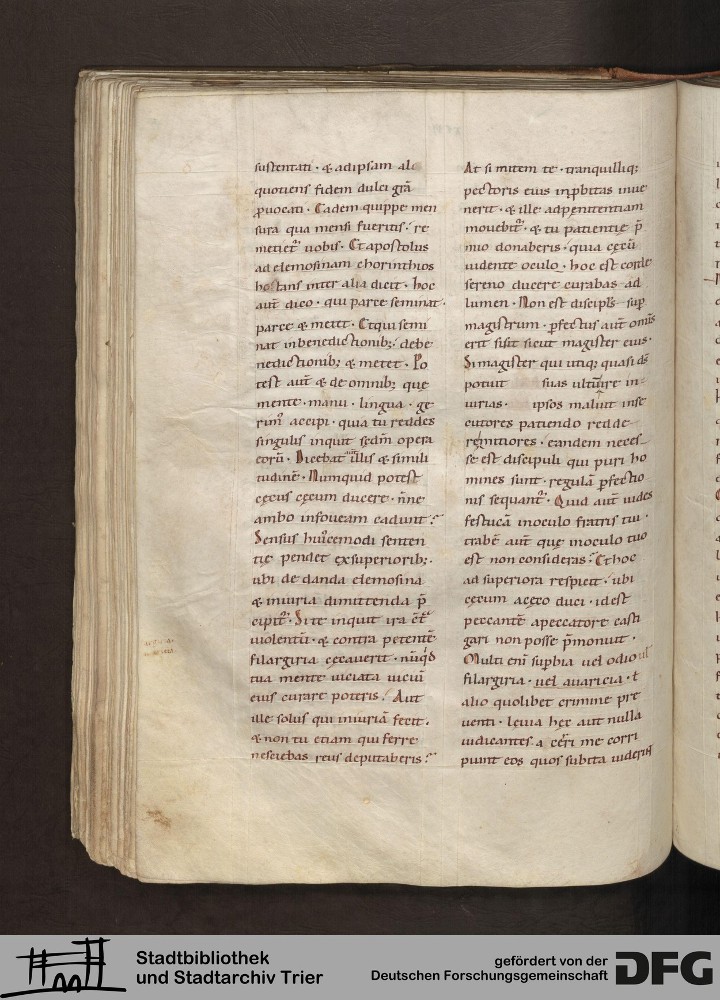 sustentati · & adipsam ali
quotiens fidem dulci grā
ꝓuocati · Eadem quippe men
sura qua mensi fueritis · re
metiet᷑ uobis · Et apostolus
ad elemosinam chorinthios
hostans inter alia dicit · hoc
aut̄ dico · qui parce seminat ·
parce & metet · Et qui semi
nat inbenedictionib; · de bene
nedictionib; & metet · Po
test aut̄ & de omnib; que
mente · manu · lingua · ge
rim᷒ accipi · quia tu reddes
singulis inquit scd̄m opera
eorū · Dicebat illis & simili
tudinē · Numquid potest
cęcus cęcum ducere · nn̄e
ambo infoueam cadunt ·
Sensus hui᷒cemodi senten
tię pendet ex superiorib; ·
ubi de danda elemosina
& iniuria dimittenda p̄
cipit᷑ · Si te inquit ira c̄t᷑
uiolentū · & contra petentē
filargiria cęcauerit · nūqd
tua mente uiciata uiciū
eius curare poteris · Aut
ille solus qui iniuriā fecit ·
& non tu etiam qui ferre
nesciebas reus deputaberis ·
At si mitem te · tranquilliq;
pectoris eius inꝓbitas inue
nerit · & ille adpenitentiam
mouebit᷑ · & tu patientię p̄
mio donaberis · quia cęcū
uidente oculo · hoc est corde
sereno ducere curabas ad
lumen · Non est discipl̄s sup̄
magistrum · ꝑfectus aut̄ om̄is
erit si sit sicut magister eius ·
Si magister qui utiq; quasi dš
potuit suas ulturre in-
iurias · ipsos maluit inse
cutores patiendo redde-
re mitiores · eandem neces-
se est discipuli qui puri ho
mines sunt · regulā ꝑfectio
nis sequant᷑ · Quid aut̄ uides
festucā in oculo fratris tui ·
trabē aut̄ que in oculo tuo
est non consideras · Et hoc
ad superiora respicit · ubi
cęcum a cęco duci · id est
peccantē a peccatore casti
gari non posse p̄monuit ·
Multi eni supbia uel odio ul
filargiria · uel auaricia · ł
alio quolibet crimine pre
uenti · leuia hęc aut nulla
iudicantes a cęri me corri
piunt eos quos subita uiderint
Stadtbibliothek
und Stadtarchiv Trier
gefördert von der
Deutschen Forschungsgemeinschaft
DFG